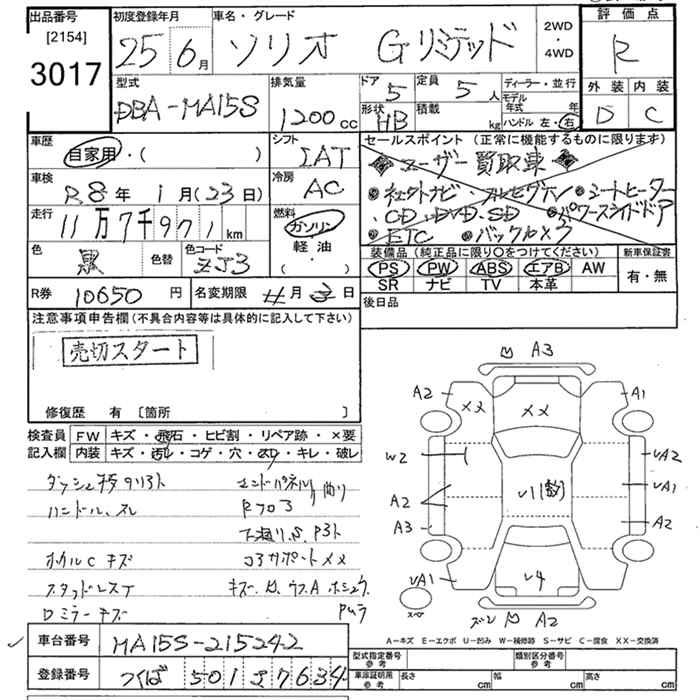 出品番号
[2154]
3017
初度登録年月
25年6月
車名・グレード
ソリオ Gリミテッド
2WD
・
4WD
評価点
R
外装 内装
D C
型式
DBA-MA15S
排気量
1200cc
ドア
5
定員
5人
形状
HB
積載
kg
ディーラー・並行
モデル年式 年
ハンドル 左・右
車歴
自家用・( )
シフト
IAT
セールスポイント (正常に機能するものに限ります)
ユーザー買取車
シートヒーター
CD・DVD・SD
パワースライドドア
ETC
バックカメラ
車検
R8年 1月(23日)
冷房
AC
走行
11万7千971km
燃料
ガソリン
軽油
( ・ )
色
黒
色替
色コード
ZJ3
装備品 (純正品に限り○をつけてください)
PS PW ABS エアB AW
SR ナビ TV 本革
新車保証書
有・無
R券 10650円
名変期限 月 日
後日品
注意事項申告欄 (不具合内容等は具体的に記入して下さい)
売切スタート
修復歴 有 〔箇所 〕
検査員 FW キズ・飛石・ヒビ割・リペア跡・×要
記入欄 内装 キズ・汚レ・コゲ・穴・スリ・キレ・破レ
ハンドルスレ
ホイルC キズ
スタッドレス
Dミラーキズ
コアサポートメメ
A3
A2
メメ
メメ
A1
W2
A2
A3
UA2
UA1
A2
UA1
U4
A2
A-キズ E-エクボ U-凹み W-補修跡 S-サビ C-腐食 XX-交換済
車台番号 MA15S-215242
登録番号 つくば 501 さ 7634
型式指定番号
参考
類別区分番号
参考
車庫証明用
参考
長さ cm
幅 cm
高さ cm